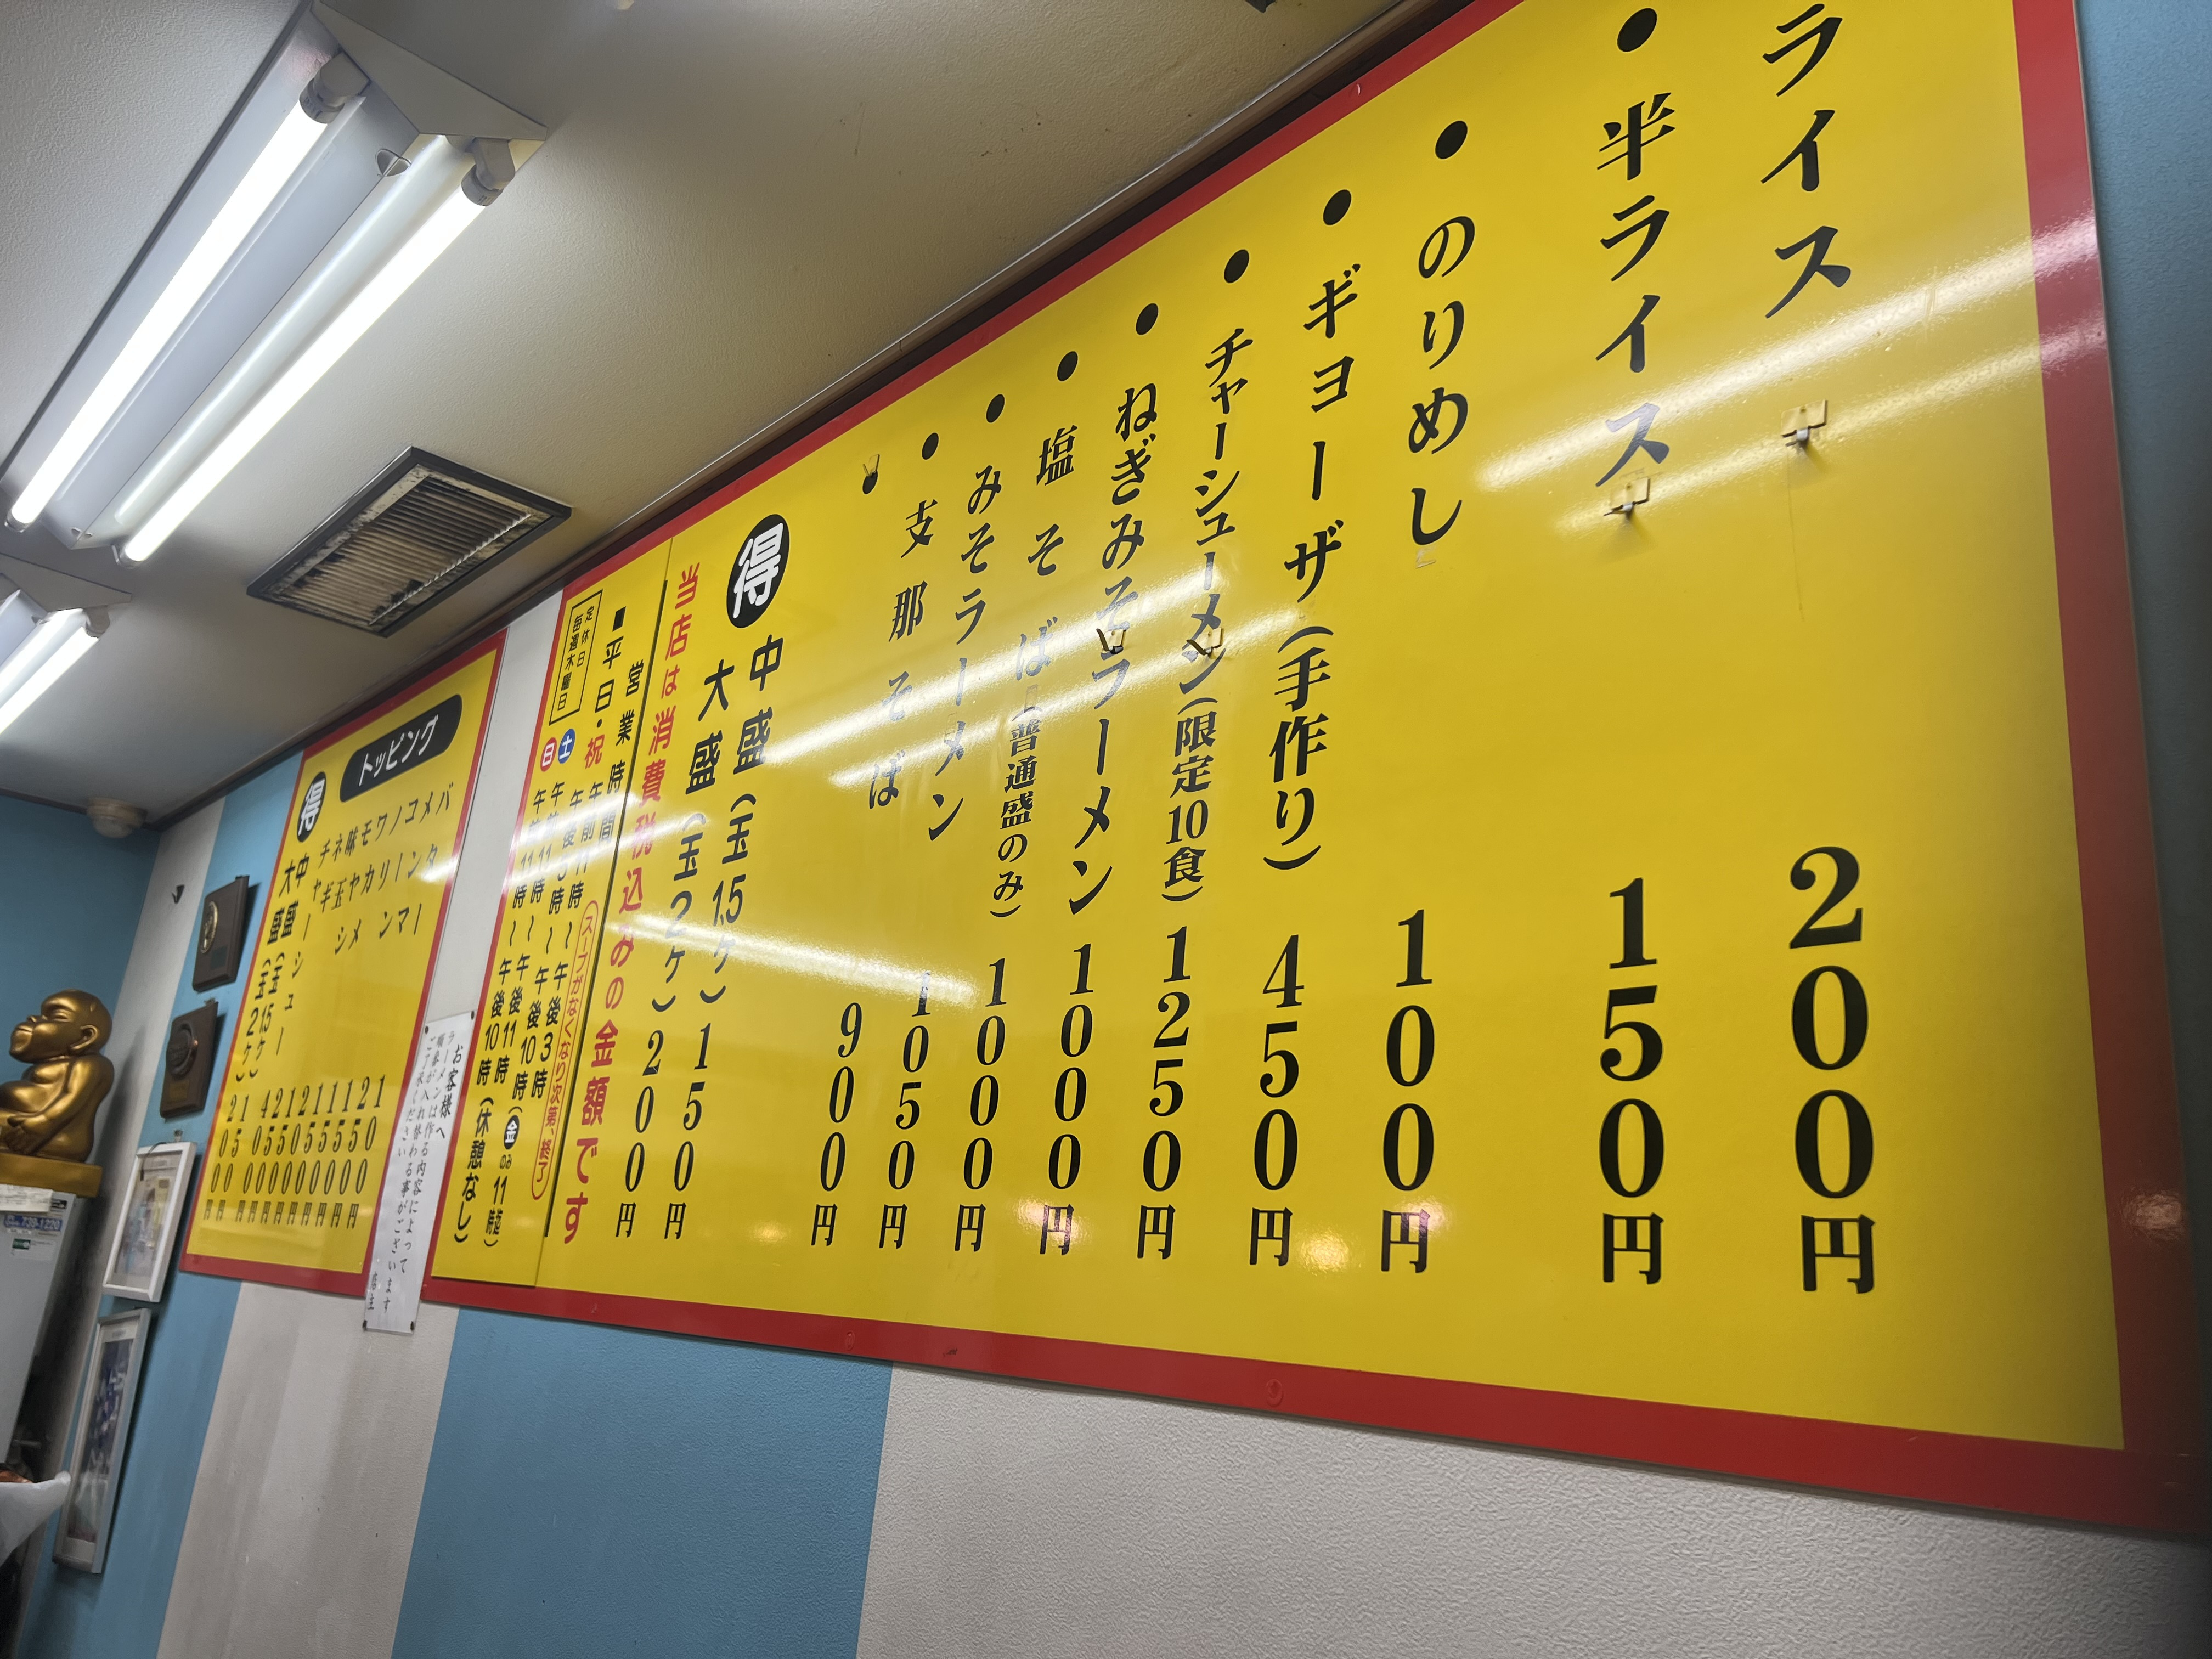 ライス 200円
●半ライス 150円
●のりめし 100円
●ギョーザ(手作り) 450円
●チャーシューメン(限定10食) 1250円
●ねぎみそラーメン 1000円
●塩そば(普通盛のみ) 1000円
●みそラーメン 1050円
●支那そば 900円
●
得 中盛(玉1.5ケ) 150円
大盛(玉2ケ) 200円
当店は消費税込みの金額です
営業時間 (スープがなくなり次第、終了)
■平日・祝 午前11時〜午後3時
午後5時〜午後10時(金のみ11時迄)
土 午前11時〜午後11時
日 午前11時〜午後10時(休憩なし)
定休日
毎週木曜日
お客様へ
ラーメンは作る内容によって
順番が入れ替わる事がございます
ご了承ください 店主
トッピング
バター 100円
メンマ 250円
コーン 150円
ノリ 150円
ワカメ 150円
モヤシ 200円
味玉 150円
ネギ 250円
チャーシュー 400円
得 中盛(玉1.5ケ) 150円
大盛(玉2ケ) 200円